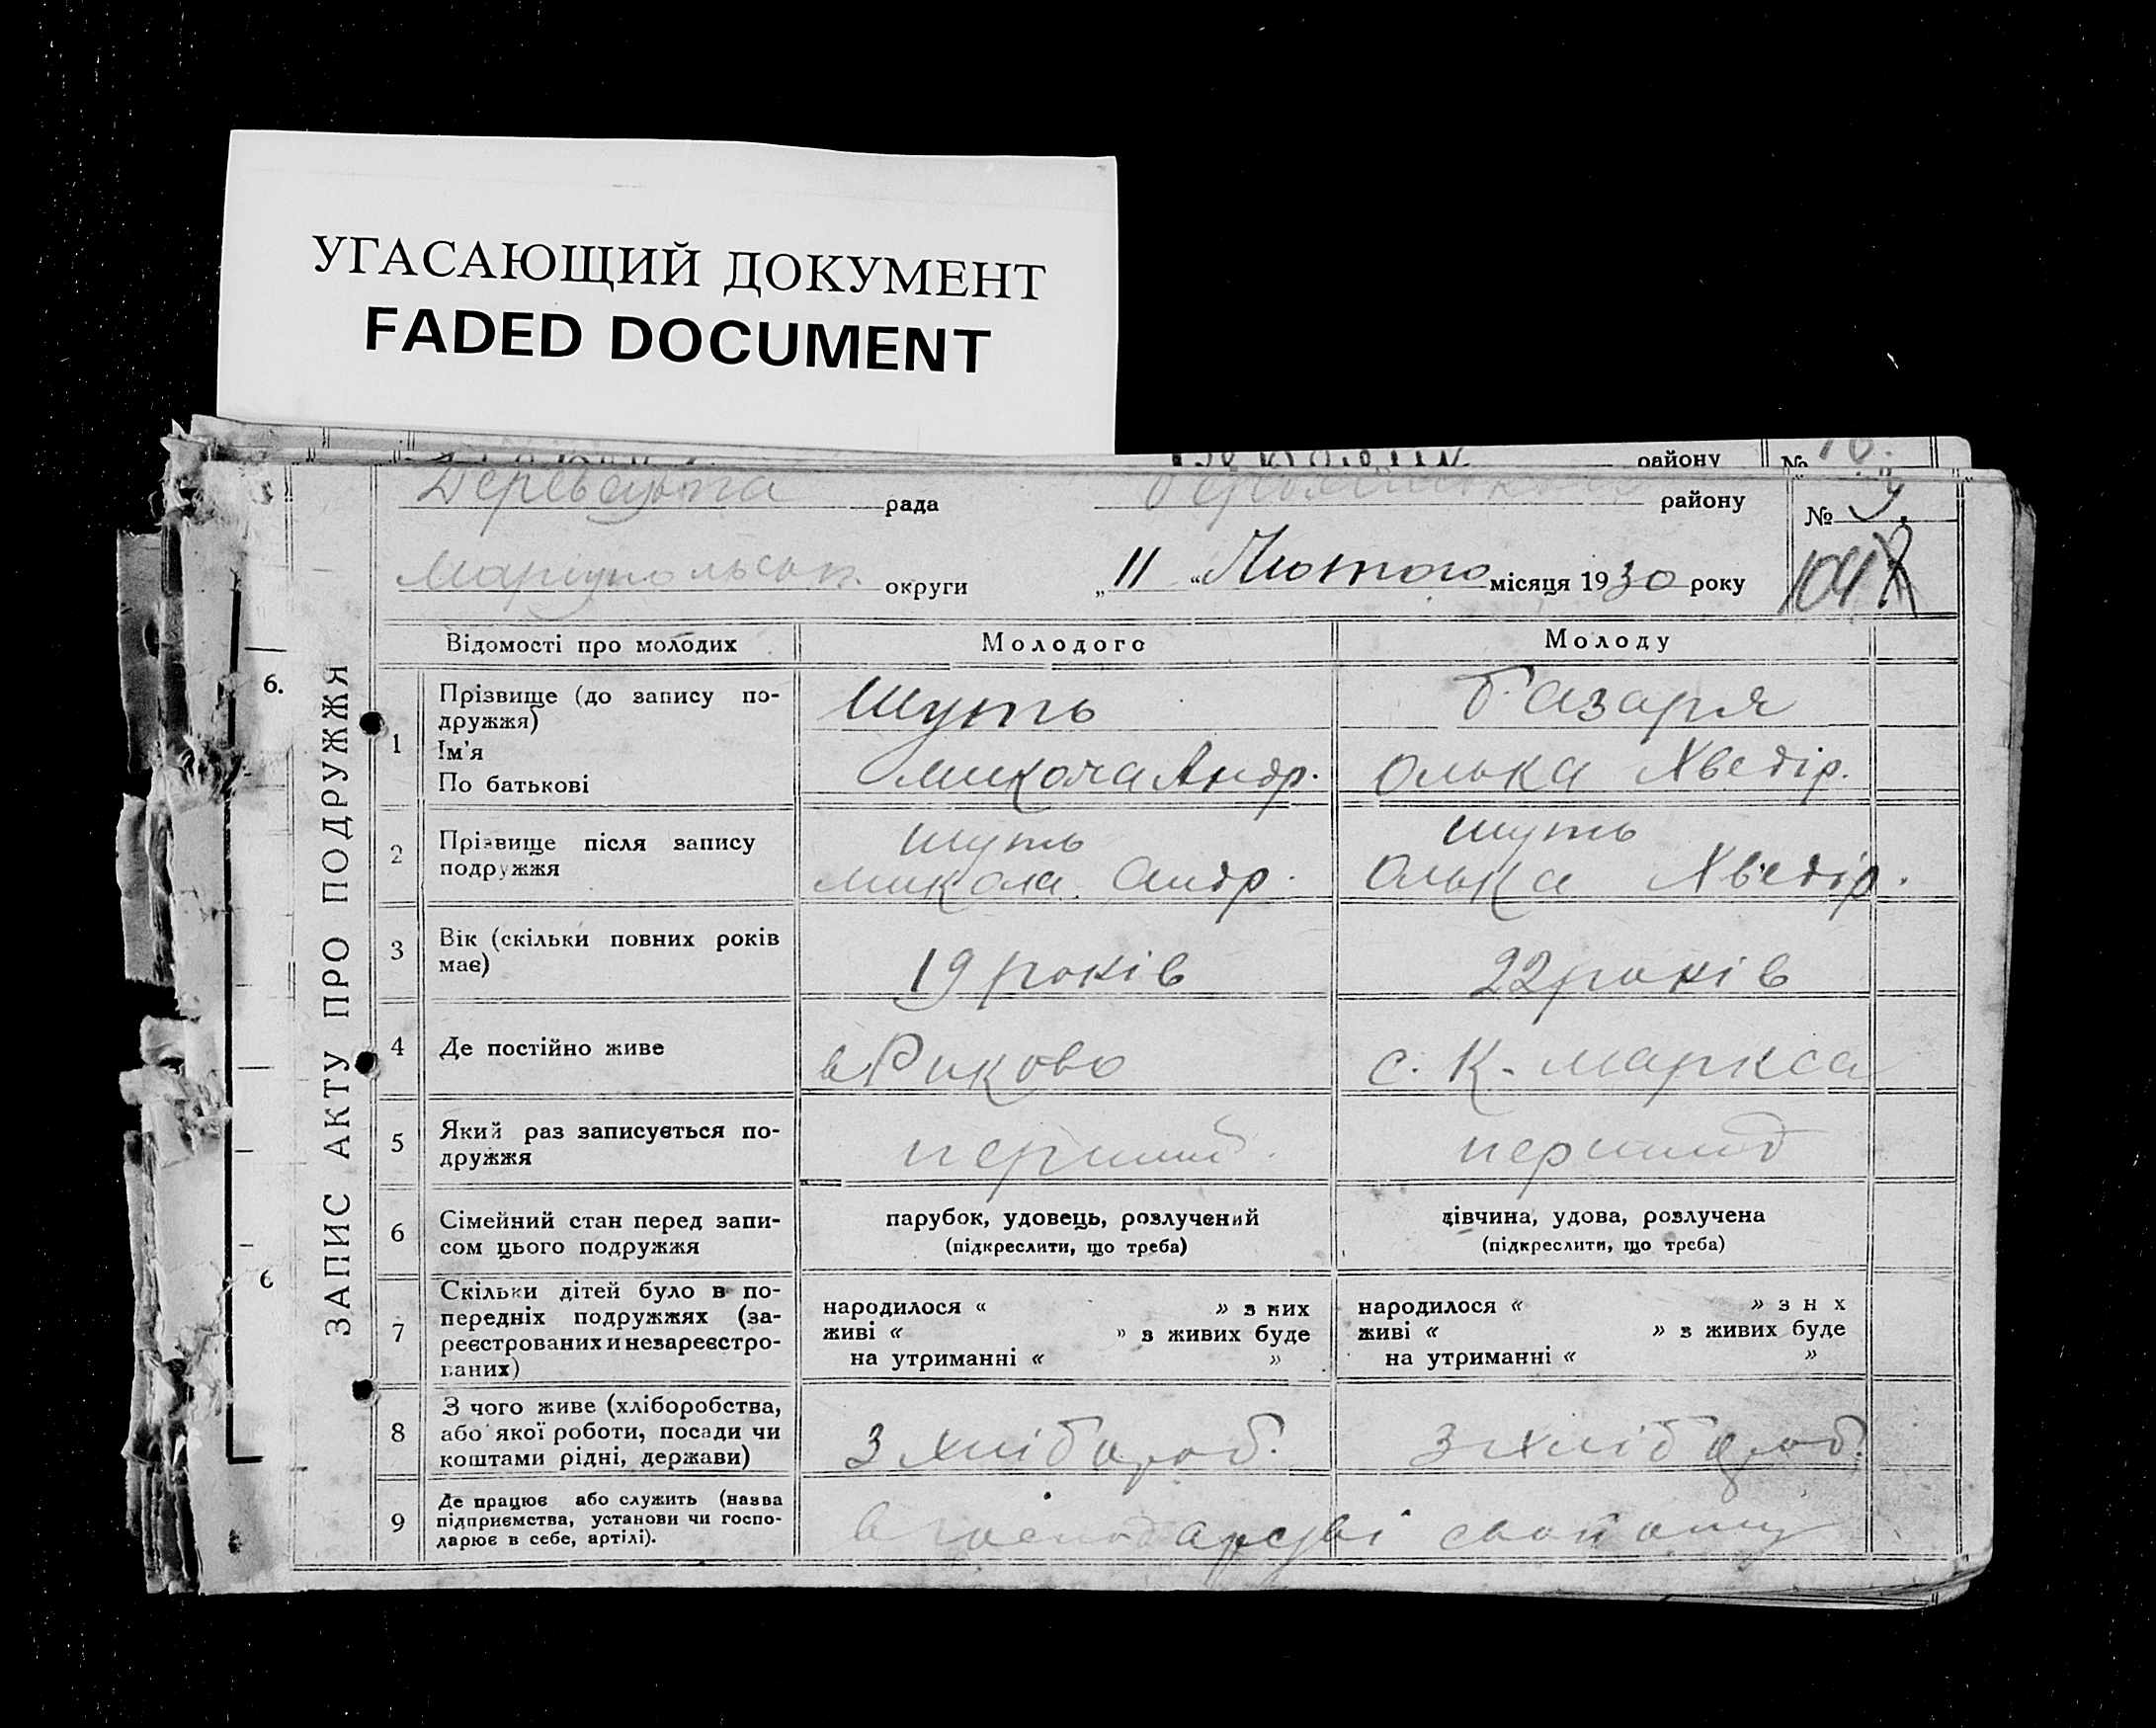 УГАСАЮЩИЙ ДОКУМЕНТ
FADED DOCUMENT
району №
рада району № 9.
Маріупольськ. округи „ 11 “ Лютого місяця 1930 року
ЗАПИС АКТУ ПРО ПОДРУЖЖЯ
6.
6
Відомості про молодих Молодого Молоду
1 Прізвище (до запису по-
дружжя)
Ім'я
По батькові
Шуть
Микола Андр.
Базаря
Олька Хведір.
2 Прізвище після запису
подружжя
Шуть
Микола Андр.
Шуть
Олька Хведір.
3 Вік (скільки повних років
має)
19 років
22 років
4 Де постійно живе
в Риково
с. К. Маркса
5 Який раз записується по-
дружжя
перший
перший
6 Сімейний стан перед запи-
сом цього подружжя
парубок, удовець, розлучений
(підкреслити, що треба)
дівчина, удова, розлучена
(підкреслити, що треба)
7 Скільки дітей було в по-
передніх подружжях (за-
реєстрованих и незареєстро-
ваних)
народилося « » з них
живі « » з живих буде
на утриманні « »
народилося « » з н х
живі « » з живих буде
на утриманні « »
8 З чого живе (хліборобства,
або якої роботи, посади чи
коштами рідні, держави)
З хлібороб.
З хлібороб.
9 Де працює або служить (назва
підприємства, установи чи госпо-
дарює в себе, артілі).
в господарстві